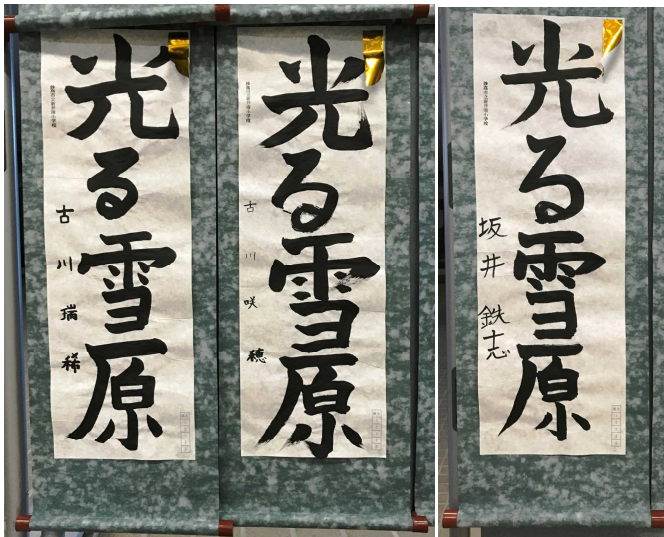 光る雪原
古川瑞稀
光る雪原
古川咲穂
光る雪原
坂井鉄志